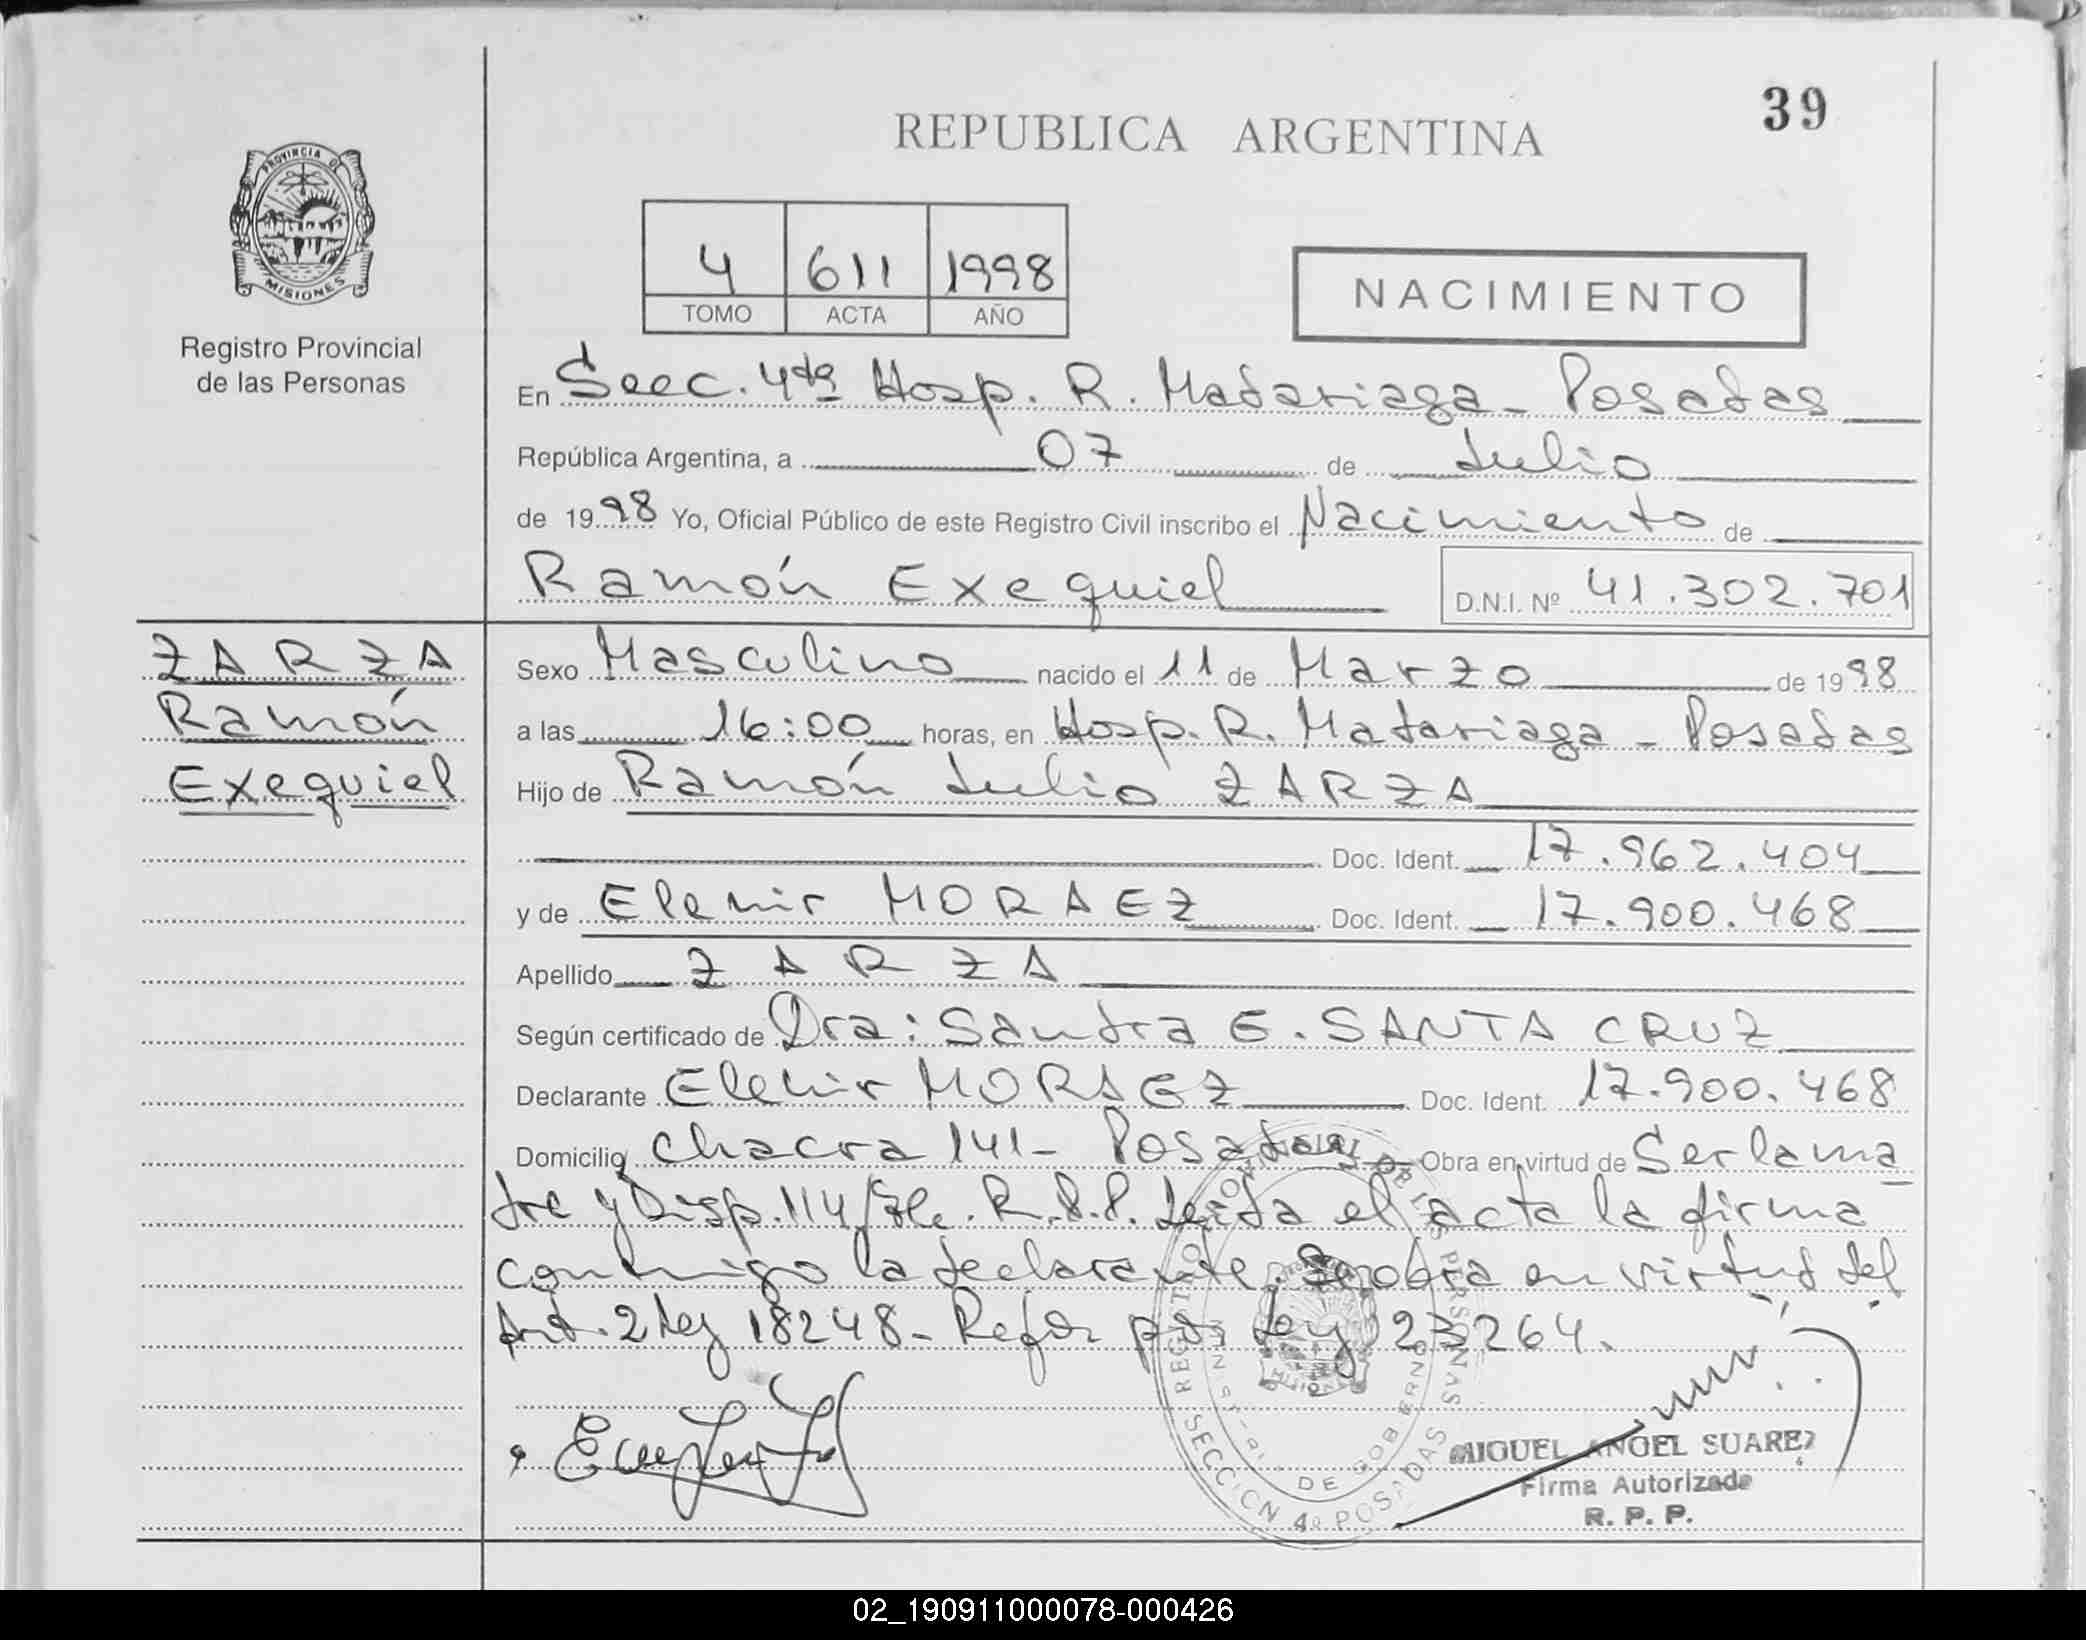 39
REPUBLICA ARGENTINA
PROVINCIA DE
MISIONES
Registro Provincial
de las Personas
4 611 1998
TOMO ACTA AÑO
NACIMIENTO
En Secc. 4ta Hosp. R. Madariaga - Posadas
República Argentina, a 07 de Julio
de 1998 Yo, Oficial Público de este Registro Civil inscribo el Nacimiento de
Ramón Exequiel D.N.I. Nº 41.302.701
ZARZA
Ramón
Exequiel
Sexo Masculino nacido el 11 de Marzo de 1998
a las 16:00 horas, en Hosp. R. Madariaga - Posadas
Hijo de Ramón Julio ZARZA
Doc. Ident. 17.962.404
y de Elenir MORAEZ Doc. Ident. 17.900.468
Apellido ZARZA
Según certificado de Dra: Sandra E. SANTA CRUZ
Declarante Elenir MORAEZ Doc. Ident. 17.900.468
Domicilio Chacra 141 - Posadas Obra en virtud de Ser la ma
dre y Disp. 114/ R.P.P. Leída el acta la firma
conmigo la declarante. obra en virtud del
Art. 2 Ley 18248 - Refor por Ley 23264.
MIGUEL ANGEL SUAREZ
Firma Autorizada
R. P. P.
SECCION 4ª POSADAS
02_190911000078-000426